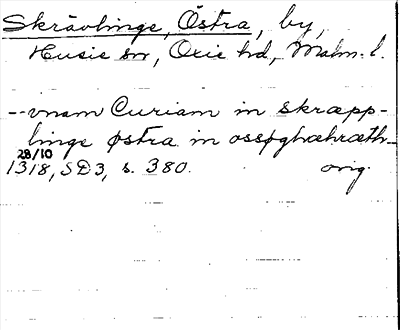 Skrävlinge, Östra, by,
Husie sn, Oxie hd, Malm. l.
-- vnam Curiam in skræpp-
linge østra in ossøghæhræth--
28/10
1318, SD3, s. 380. orig.